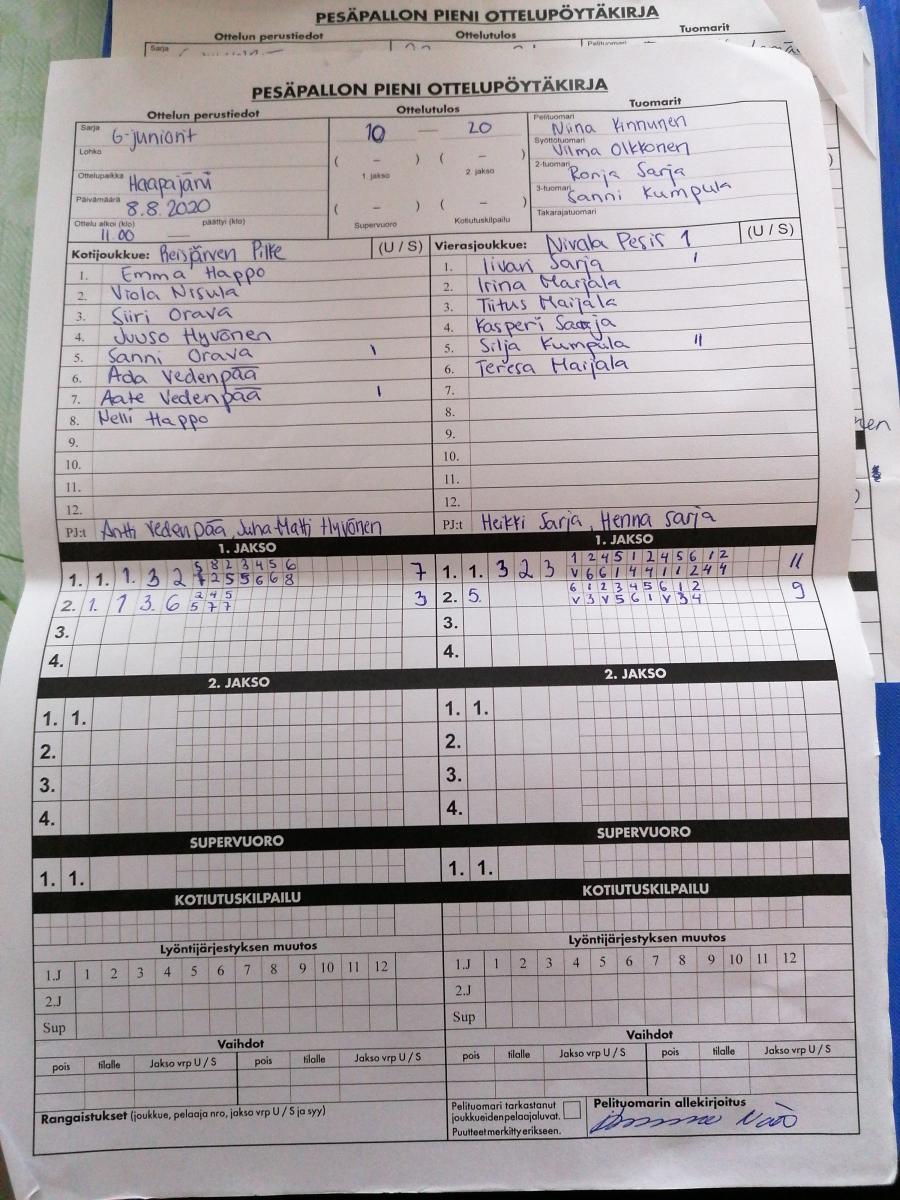 PESÄPALLON PIENI OTTELUPÖYTÄKIRJA
Ottelun perustiedot Ottelutulos Tuomarit
Sarja
PESÄPALLON PIENI OTTELUPÖYTÄKIRJA
Ottelun perustiedot Ottelutulos Tuomarit
Sarja G-juniorit
Lohko
Ottelupaikka Haapajärvi
Päivämäärä 8.8.2020
Ottelu alkoi (klo) päättyi (klo)
11.00 —
10 — 20
( – ) ( – )
1. jakso 2. jakso
( – ) ( – )
Supervuoro Kotiutuskilpailu
Pelituomari Niina Kinnunen
Syöttötuomari Vilma Olkkonen
2-tuomari Ronja Sarja
3-tuomari Sanni Kumpula
Takarajatuomari
Kotijoukkue: Reisjärven Pilke (U / S)
1. Emma Happo
2. Viola Nisula
3. Siiri Orava
4. Juuso Hyvönen
5. Sanni Orava I
6. Ada Vedenpää
7. Aate Vedenpää I
8. Nelli Happo
9.
10.
11.
12.
PJ:t Antti Vedenpää, Juha-Matti Hyvönen
Vierasjoukkue: Nivala Pesis 1 (U / S)
1. Iivari Sarja I
2. Irina Marjala
3. Tiitus Maijala
4. Kasperi Sarja
5. Silja Kumpula II
6. Teresa Maijala
7.
8.
9.
10.
11.
12.
PJ:t Heikki Sarja, Henna Sarja
1. JAKSO
1. 1. 1. 3 2 5 8 2 3 4 5 6 7
7 2 5 5 6 6 8
2. 1. 1 3 6 2 4 5 3
5 7 7
3.
4.
1. JAKSO
1. 1. 3 2 3 1 2 4 5 1 2 4 5 6 1 2 11
V 6 6 1 4 4 1 1 2 4 4
2. 5. 6 1 2 3 4 5 6 1 2 9
V 3 V 5 6 1 V 3 4
3.
4.
2. JAKSO
1. 1.
2.
3.
4.
2. JAKSO
1. 1.
2.
3.
4.
SUPERVUORO
1. 1.
SUPERVUORO
1. 1.
KOTIUTUSKILPAILU
KOTIUTUSKILPAILU
Lyöntijärjestyksen muutos
1.J 1 2 3 4 5 6 7 8 9 10 11 12
2.J
Sup
Lyöntijärjestyksen muutos
1.J 1 2 3 4 5 6 7 8 9 10 11 12
2.J
Sup
Vaihdot
pois tilalle Jakso vrp U / S pois tilalle Jakso vrp U / S
Vaihdot
pois tilalle Jakso vrp U / S pois tilalle Jakso vrp U / S
Rangaistukset (joukkue, pelaaja nro, jakso vrp U / S ja syy)
Pelituomari tarkastanut
joukkueidenpelaajaluvat.
Puutteetmerkittyerikseen.
Pelituomarin allekirjoitus